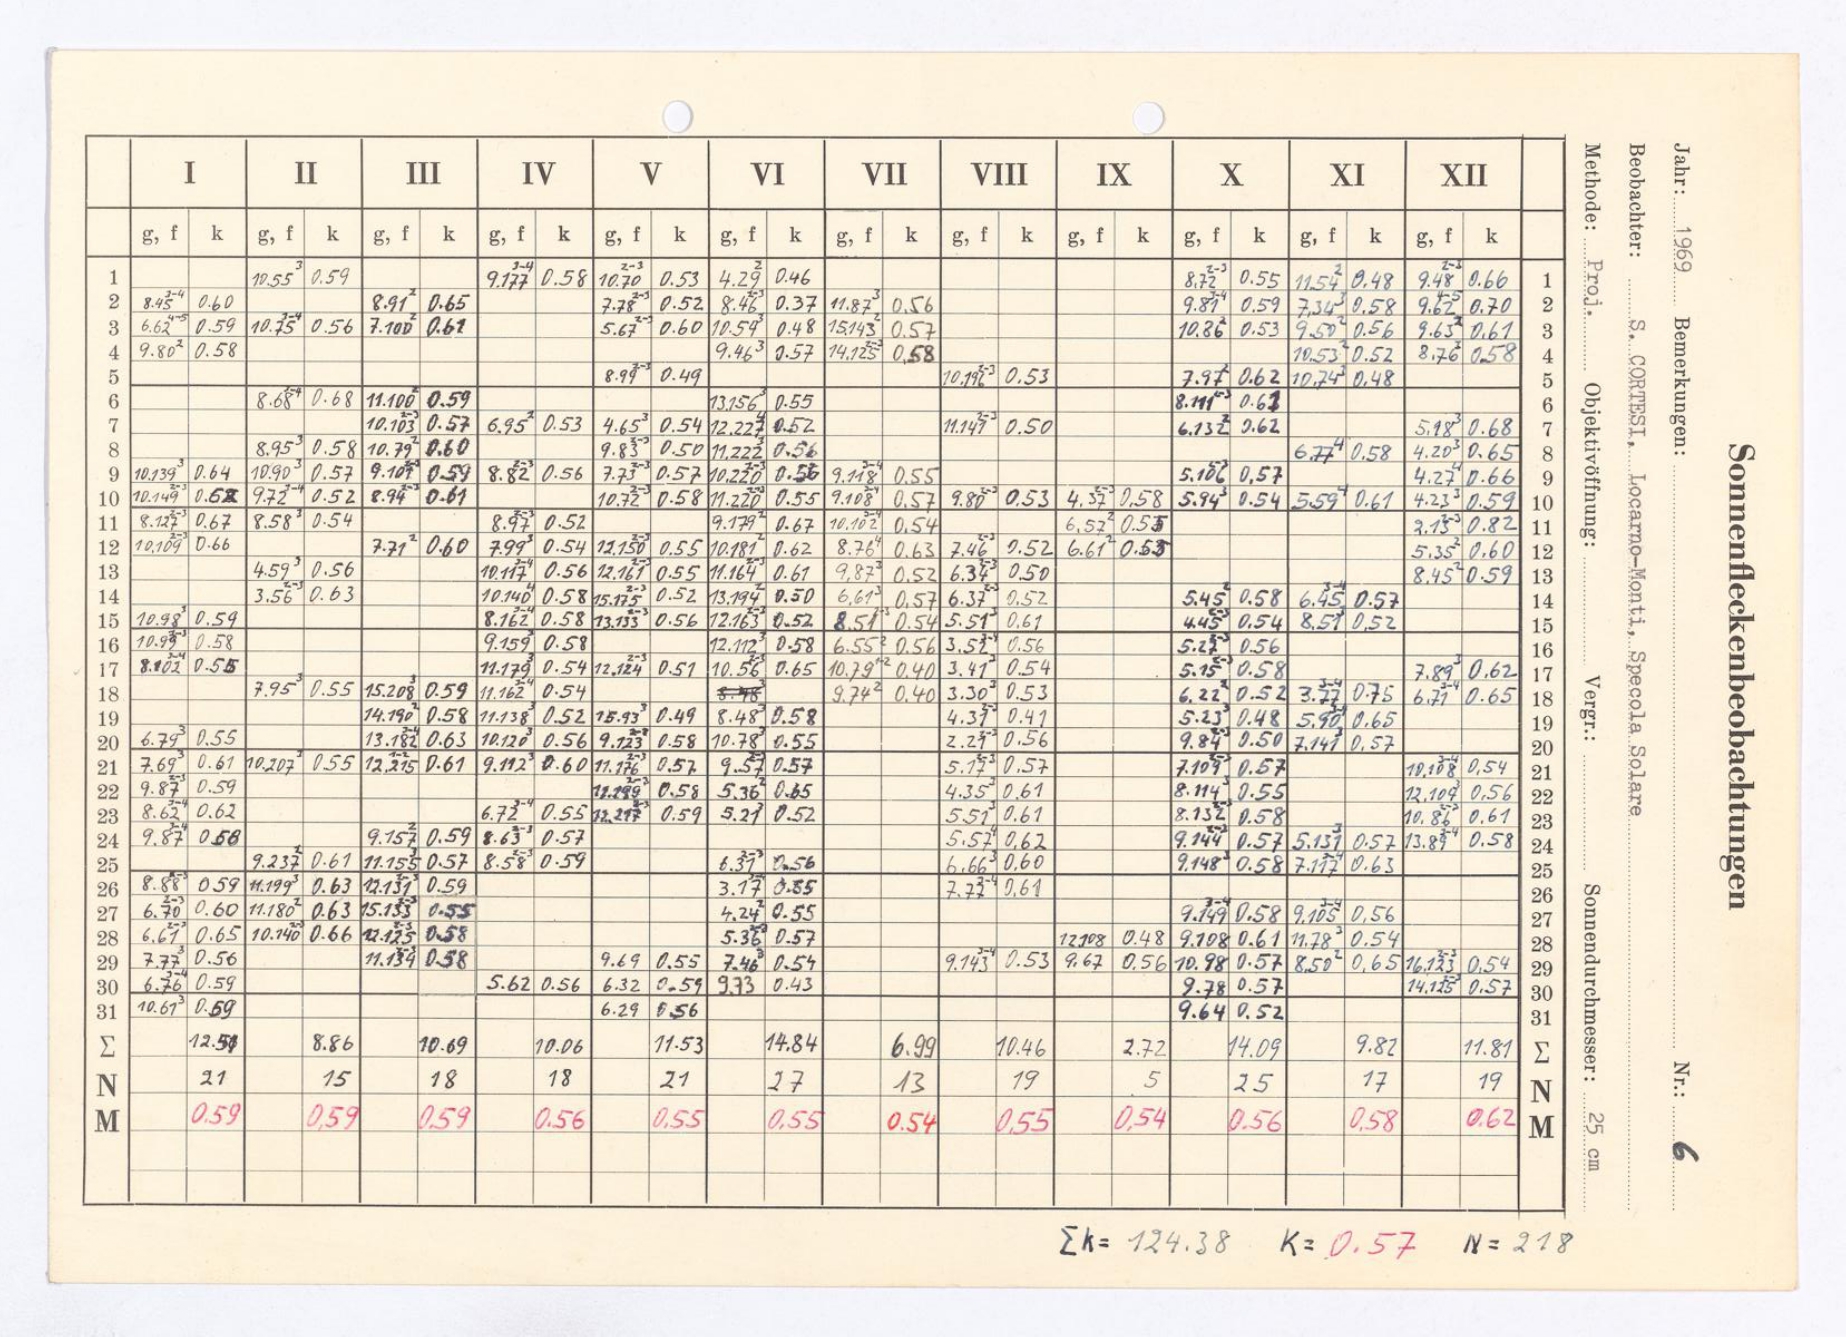 Sonnenfleckenbeobachtungen
Jahr: 1969 Bemerkungen: Nr.: 6
Beobachter: S. CORTESI, Locarno-Monti, Specola Solare
Methode: Proj. Objektivöffnung: Vergr.: Sonnendurchmesser: 25 cm
I II III IV V VI VII VIII IX X XI XII
g, f k g, f k g, f k g, f k g, f k g, f k g, f k g, f k g, f k g, f k g, f k g, f k
1 10.55³ 0.59 9.177³⁻⁴ 0.58 10.70²⁻³ 0.53 4.29² 0.46 8.72²⁻³ 0.55 11.54² 0.48 9.48²⁻³ 0.66 1
2 8.45³⁻⁴ 0.60 8.91² 0.65 7.78²⁻³ 0.52 8.46²⁻³ 0.37 11.87³ 0.56 9.81³⁻⁴ 0.59 7.34³ 0.58 9.62⁴⁻⁵ 0.70 2
3 6.62⁴⁻⁵ 0.59 10.75³⁻⁴ 0.56 7.100² 0.61 5.67²⁻³ 0.60 10.59³ 0.48 15.143² 0.57 10.86² 0.53 9.50² 0.56 9.63² 0.61 3
4 9.80² 0.58 9.46³ 0.57 14.125²⁻³ 0.58 10.53² 0.52 8.76² 0.58 4
5 8.99²⁻³ 0.49 10.196²⁻³ 0.53 7.97² 0.62 10.74³ 0.48 5
6 8.68³⁻⁴ 0.68 11.100² 0.59 13.156³ 0.55 8.111²⁻³ 6
7 10.103²⁻³ 0.57 6.95² 0.53 4.65³ 0.54 12.227⁴ 0.52 11.147³ 0.50 6.132² 0.62 5.18³ 0.68 7
8 8.95³ 0.58 10.79² 0.60 9.83²⁻³ 0.50 11.222³ 0.56 6.77⁴ 0.58 4.20³ 0.65 8
9 10.139³ 0.64 10.90³ 0.57 9.101²⁻³ 0.59 8.82²⁻³ 0.56 7.73²⁻³ 0.57 10.220²⁻³ 9.118³⁻⁴ 0.55 5.106²⁻³ 0.57 4.27⁴ 0.66 9
10 10.149²⁻³ 9.72³⁻⁴ 0.52 8.94²⁻³ 0.61 10.72²⁻³ 0.58 11.220²⁻³ 0.55 9.108³⁻⁴ 0.57 9.80²⁻³ 0.53 4.37²⁻³ 0.58 5.94³ 0.54 5.59⁴ 0.61 4.23³ 0.59 10
11 8.127²⁻³ 0.67 8.58³ 0.54 8.97²⁻³ 0.52 9.179² 0.67 10.102³⁻⁴ 0.54 6.57² 2.15²⁻³ 0.82 11
12 10.109³ 0.66 7.71² 0.60 7.99³ 0.54 12.150²⁻³ 0.55 10.181² 0.62 8.76⁴ 0.63 7.46²⁻³ 0.52 6.61² 5.35² 0.60 12
13 4.59³ 0.56 10.117³⁻⁴ 0.56 12.161²⁻³ 0.55 11.164³ 0.61 9.87³ 0.52 6.34²⁻³ 0.50 8.45² 0.59 13
14 3.56²⁻³ 0.63 10.140⁴ 0.58 15.175²⁻³ 0.52 13.194² 0.50 6.61³ 0.57 6.37²⁻³ 0.52 5.45² 0.58 6.45³⁻⁴ 0.57 14
15 10.98³ 0.59 8.162³⁻⁴ 0.58 13.133²⁻³ 0.56 12.163²⁻³ 0.52 8.51²⁻³ 0.54 5.51³ 0.61 4.45²⁻³ 0.54 8.51³ 0.52 15
16 10.99²⁻³ 0.58 9.159³ 0.58 12.112³ 0.58 6.55² 0.56 3.52³⁻⁴ 0.56 5.27²⁻³ 0.56 16
17 8.102³⁻⁴ 0.55 11.179³ 0.54 12.124²⁻³ 0.51 10.56²⁻³ 0.65 10.79¹⁻² 0.40 3.41³ 0.54 5.15²⁻³ 0.58 7.89³ 0.62 17
18 7.95³ 0.55 15.208³ 0.59 11.162³⁻⁴ 0.54 9.74² 0.40 3.30³ 0.53 6.22² 0.52 3.27³⁻⁴ 0.75 6.71³⁻⁴ 0.65 18
19 14.190² 0.58 11.138³ 0.52 15.93³ 0.49 8.48³ 0.58 4.31²⁻³ 0.41 5.23³ 0.48 5.90³⁻⁴ 0.65 19
20 6.79³ 0.55 13.182³⁻⁴ 0.63 10.120³ 0.56 9.123²⁻³ 0.58 10.78³ 0.55 2.21²⁻³ 0.56 9.84³ 0.50 7.141³ 0.57 20
21 7.69³ 0.61 10.207³ 0.55 12.215¹⁻² 0.61 9.112³ 0.60 11.176²⁻³ 0.57 9.57²⁻³ 0.57 5.17²⁻³ 0.57 7.109²⁻³ 0.57 10.108³⁻⁴ 0.54 21
22 9.87²⁻³ 0.59 12.199²⁻³ 0.58 5.36² 0.65 4.35³ 0.61 8.114³ 0.55 12.109³ 0.56 22
23 8.62³⁻⁴ 0.62 6.72³⁻⁴ 0.55 12.217²⁻³ 0.59 5.21³ 0.52 5.51³ 0.61 8.132²⁻³ 0.58 10.86²⁻³ 0.61 23
24 9.87³⁻⁴ 9.157² 0.59 8.63²⁻³ 0.57 5.57⁴ 0.62 9.144²⁻³ 0.57 5.131³ 0.57 13.89³⁻⁴ 0.58 24
25 9.237² 0.61 11.155³ 0.57 8.58³ 0.59 6.31²⁻³ 0.56 6.66³ 0.60 9.148³ 0.58 7.117³⁻⁴ 0.63 25
26 8.88²⁻³ 0.59 11.199³ 0.63 12.131³ 0.59 3.17³ 0.55 7.77³⁻⁴ 0.61 26
27 6.70²⁻³ 0.60 11.180² 0.63 15.133²⁻³ 0.55 4.24² 0.55 9.149³⁻⁴ 0.58 9.105³⁻⁴ 0.56 27
28 6.61²⁻³ 0.65 10.140²⁻³ 0.66 12.125²⁻³ 0.58 5.36²⁻³ 0.57 12.108 0.48 9.108 0.61 11.78³ 0.54 28
29 7.77³ 0.56 11.139²⁻³ 0.58 9.69 0.55 7.46³ 0.54 9.143³⁻⁴ 0.53 9.67 0.56 10.98 0.57 8.50² 0.65 16.123²⁻³ 0.54 29
30 6.76³⁻⁴ 0.59 5.62 0.56 6.32 0.59 9.73 0.43 9.78 0.57 14.125²⁻³ 0.57 30
31 10.61³ 0.59 6.29 0.56 9.64 0.52 31
Σ 8.86 10.69 10.06 11.53 14.84 6.99 10.46 2.72 14.09 9.82 11.81 Σ
N 21 15 18 18 21 27 13 19 5 25 17 19 N
M 0.59 0.59 0.59 0.56 0.55 0.55 0.54 0.55 0.54 0.56 0.58 0.62 M
Σk= 124.38 K= 0.57 N= 218